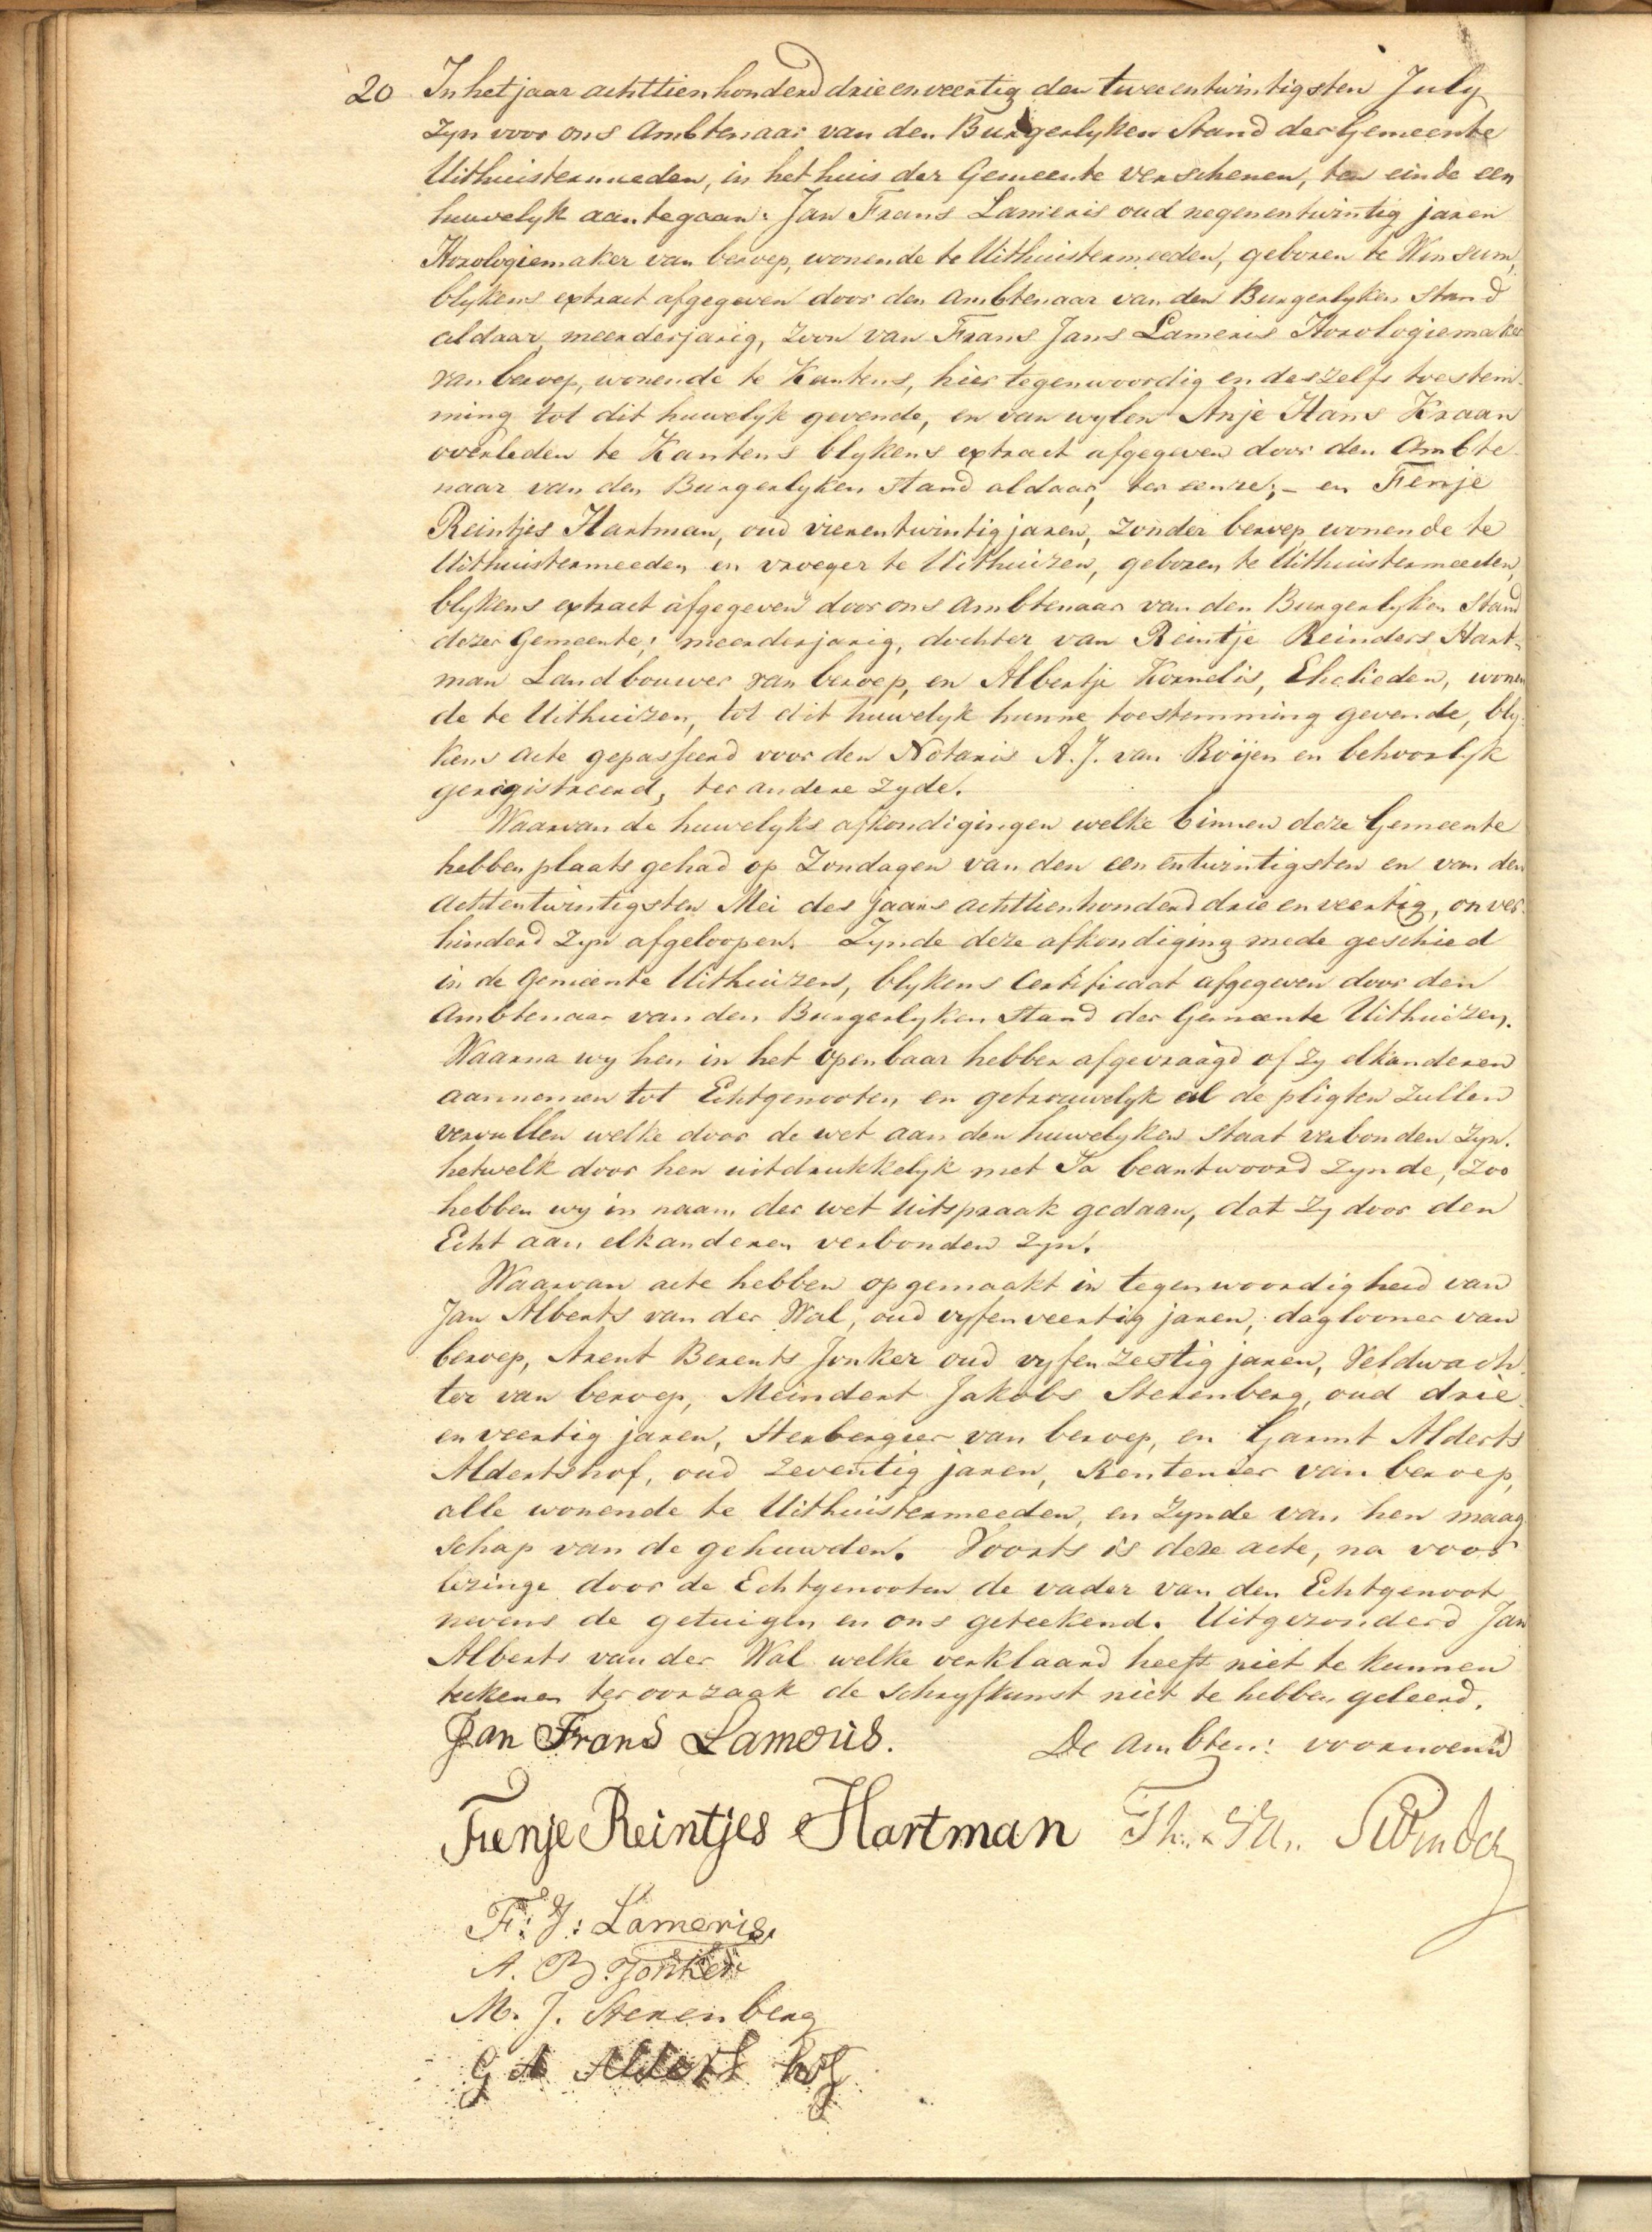 20 In het jaar achttienhonderd drie en veertig den tweeentwintigsten July
zyn voor ons Ambtenaar van den Burgerlyken Stand der Gemeente
Uithuistermeeden, in het huis der Gemeente verschenen, ten einde een
huwelyk aantegaan: Jan Frans Lameris oud negenentwintig jaren
Horologiemaker van beroep, wonende te Uithuistermeeden, geboren te Winsum,
blykens extract afgegeven door den Ambtenaar van den Burgerlyken Stand
aldaar, meerderjarig, zoon van Frans Jans Lameris Horologiemaker
van beroep, wonende te Kantens, hier tegenwoordig en deszelfs toestem-
ming tot dit huwelyk gevende, en van wylen Anje Hans Kraan
overleden te Kantens blykens extract afgegeven door den Ambte-
naar van den Burgerlyken Stand aldaar, ter eenre; – en Fenje
Reintjes Hartman, oud vierentwintig jaren, zonder beroep, wonende te
Uithuistermeeden en vroeger te Uithuizen, geboren te Uithuistermeeden,
blykens extract afgegeven door ons Ambtenaar van den Burgerlyken Stand
dezer Gemeente; meerderjarig, dochter van Reintje Reinders Hart-
man Landbouwer van beroep, en Albertje Kornelis, Ehelieden, wonen
de te Uithuizen, tot dit huwelyk hunne toestemming gevende, bly-
kens acte gepasseerd voor den Notaris A. J. van Roijen en behoorlyk
geregistreerd, ter andere zyde.
Waarvan de huwelyks afkondigingen welke binnen deze Gemeente
hebben plaats gehad op Zondagen van den een entwintigsten en van den
achtentwintigsten Mei des jaars achttienhonderd drie en veertig, onver-
hinderd zyn afgeloopen. Zynde deze afkondiging mede geschied
in de Gemeente Uithuizen, blykens Certificaat afgegeven door den
Ambtenaar van den Burgerlyken Stand der Gemeente Uithuizen.
Waarna wy hen in het openbaar hebben afgevraagd of zy elkanderen
aannemen tot Echtgenooten, en getrouwelyk al de pligten zullen
vervullen welke door de wet aan den huwelyken staat verbonden zyn.
hetwelk door hen uitdrukkelyk met Ja beantwoord zynde, zoo
hebben wy in naam der wet uitspraak gedaan, dat zy door den
Echt aan elkanderen verbonden zyn.
Waarvan acte hebben opgemaakt in tegenwoordigheid van
Jan Alberts van der Wal, oud vyfenveertig jaren, daglooner van
beroep, Arent Berents Jonker oud vyfen zestig jaren, Veldwach
ter van beroep, Meindert Jakobs Sterenberg, oud drie
en veertig jaren, Herbergier van beroep, en Garmt Alderts
Aldertshof, oud zeventig jaren, Rentenier van beroep,
alle wonende te Uithuistermeeden, en zynde van hen maag
schap van de gehuwden. Voorts is deze acte, na voor
lezinge door de Echtgenooten de vader van den Echtgenoot
nevens de getuigen en ons geteekend. Uitgezonderd Jan
Alberts van der Wal welke verklaard heeft niet te kunnen
teekenen ter oorzaak de schryfkunst niet te hebben geleerd.
Jan Frans Lameris. De Ambten: voornoemd
Fienje Reintjes Hartman
F: J: Lameris.
A. B. Jonker
M. J. Sterenberg
G A Aldert hof